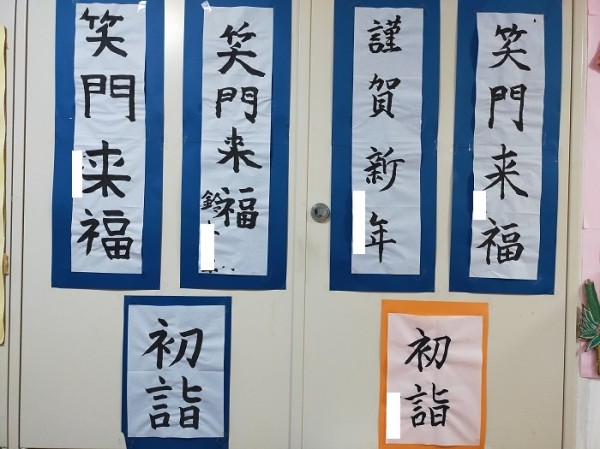 笑門来福
笑門来福
鈴
謹賀新年
笑門来福
初詣
初詣